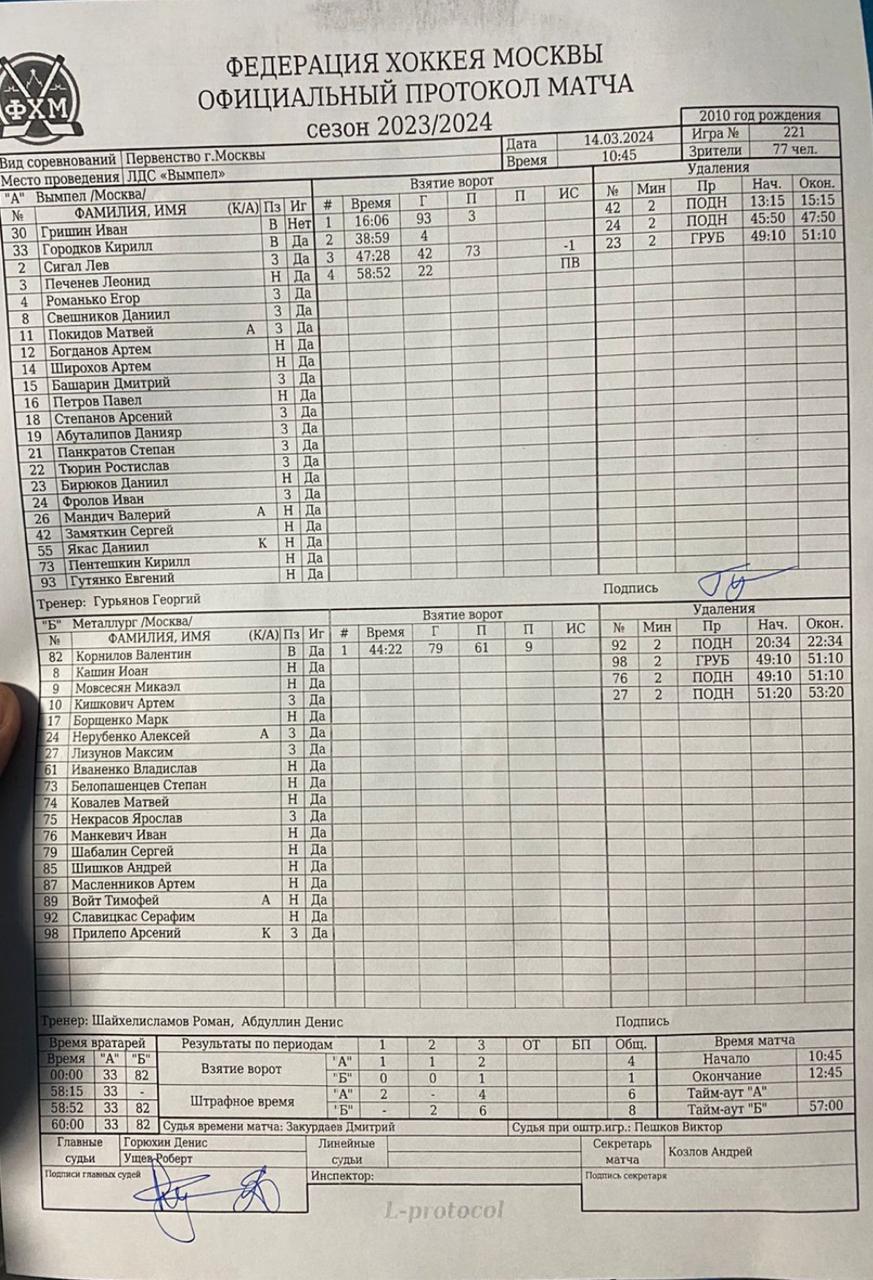 ФХМ
ФЕДЕРАЦИЯ ХОККЕЯ МОСКВЫ
ОФИЦИАЛЬНЫЙ ПРОТОКОЛ МАТЧА
сезон 2023/2024
2010 год рождения
Вид соревнований Первенство г.Москвы Дата 14.03.2024 Игра № 221
Место проведения ЛДС «Вымпел» Время 10:45 Зрители 77 чел.
"А" Вымпел /Москва/ Взятие ворот Удаления
№ ФАМИЛИЯ, ИМЯ (К/А) Пз Иг # Время Г П П ИС № Мин Пр Нач. Окон.
30 Гришин Иван В Нет 1 16:06 93 3 42 2 ПОДН 13:15 15:15
33 Городков Кирилл В Да 2 38:59 4 24 2 ПОДН 45:50 47:50
2 Сигал Лев З Да 3 47:28 42 73 -1 23 2 ГРУБ 49:10 51:10
3 Печенев Леонид Н Да 4 58:52 22 ПВ
4 Романько Егор З Да
8 Свешников Даниил З Да
11 Покидов Матвей А З Да
12 Богданов Артем Н Да
14 Широхов Артем Н Да
15 Башарин Дмитрий З Да
16 Петров Павел Н Да
18 Степанов Арсений З Да
19 Абуталипов Данияр З Да
21 Панкратов Степан З Да
22 Тюрин Ростислав З Да
23 Бирюков Даниил Н Да
24 Фролов Иван З Да
26 Мандич Валерий А Н Да
42 Замяткин Сергей Н Да
55 Якас Даниил К Н Да
73 Пентешкин Кирилл Н Да
93 Гутянко Евгений Н Да
Тренер: Гурьянов Георгий Подпись
"Б" Металлург /Москва/ Взятие ворот Удаления
№ ФАМИЛИЯ, ИМЯ (К/А) Пз Иг # Время Г П П ИС № Мин Пр Нач. Окон.
82 Корнилов Валентин В Да 1 44:22 79 61 9 92 2 ПОДН 20:34 22:34
8 Кашин Иоан Н Да 98 2 ГРУБ 49:10 51:10
9 Мовсесян Микаэл Н Да 76 2 ПОДН 49:10 51:10
10 Кишкович Артем З Да 27 2 ПОДН 51:20 53:20
17 Борщенко Марк Н Да
24 Нерубенко Алексей А З Да
27 Лизунов Максим З Да
61 Иваненко Владислав Н Да
73 Белопашенцев Степан Н Да
74 Ковалев Матвей Н Да
75 Некрасов Ярослав З Да
76 Манкевич Иван Н Да
79 Шабалин Сергей Н Да
85 Шишков Андрей Н Да
87 Масленников Артем Н Да
89 Войт Тимофей А Н Да
92 Славицкас Серафим Н Да
98 Прилепо Арсений К З Да
Тренер: Шайхелисламов Роман, Абдуллин Денис Подпись
Время вратарей Результаты по периодам 1 2 3 ОТ БП Общ. Время матча
Время "А" "Б" Взятие ворот "А" 1 1 2 4 Начало 10:45
00:00 33 82 "Б" 0 0 1 1 Окончание 12:45
58:15 33 - Штрафное время "А" 2 - 4 6 Тайм-аут "А"
58:52 33 82 "Б" - 2 6 8 Тайм-аут "Б" 57:00
60:00 33 82 Судья времени матча: Закурдаев Дмитрий Судья при оштр.игр.: Пешков Виктор
Главные судьи Горюхин Денис Линейные судьи Секретарь матча Козлов Андрей
Ущев Роберт
Подписи главных судей Инспектор: Подпись секретаря
L-protocol